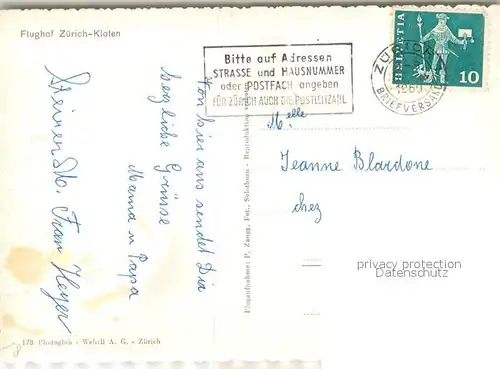 Flughof Zürich-Kloten
Bitte auf Adressen
STRASSE und HAUSNUMMER
oder POSTFACH angeben
FÜR ZÜRICH AUCH DIE POSTLEITZAHL
HELVETIA
10
BRIEFVERSAND
Von hier aus sendet Dir
herzliche Grüsse
Mama u Papa
Frau Heyer
Melle
Jeanne Blardone
chez
privacy protection
Datenschutz
Flugaufnahme: P. Zaugg, Fot., Solothurn - Reproduktion
178 Photoglob - Wehrli A. G. - Zürich